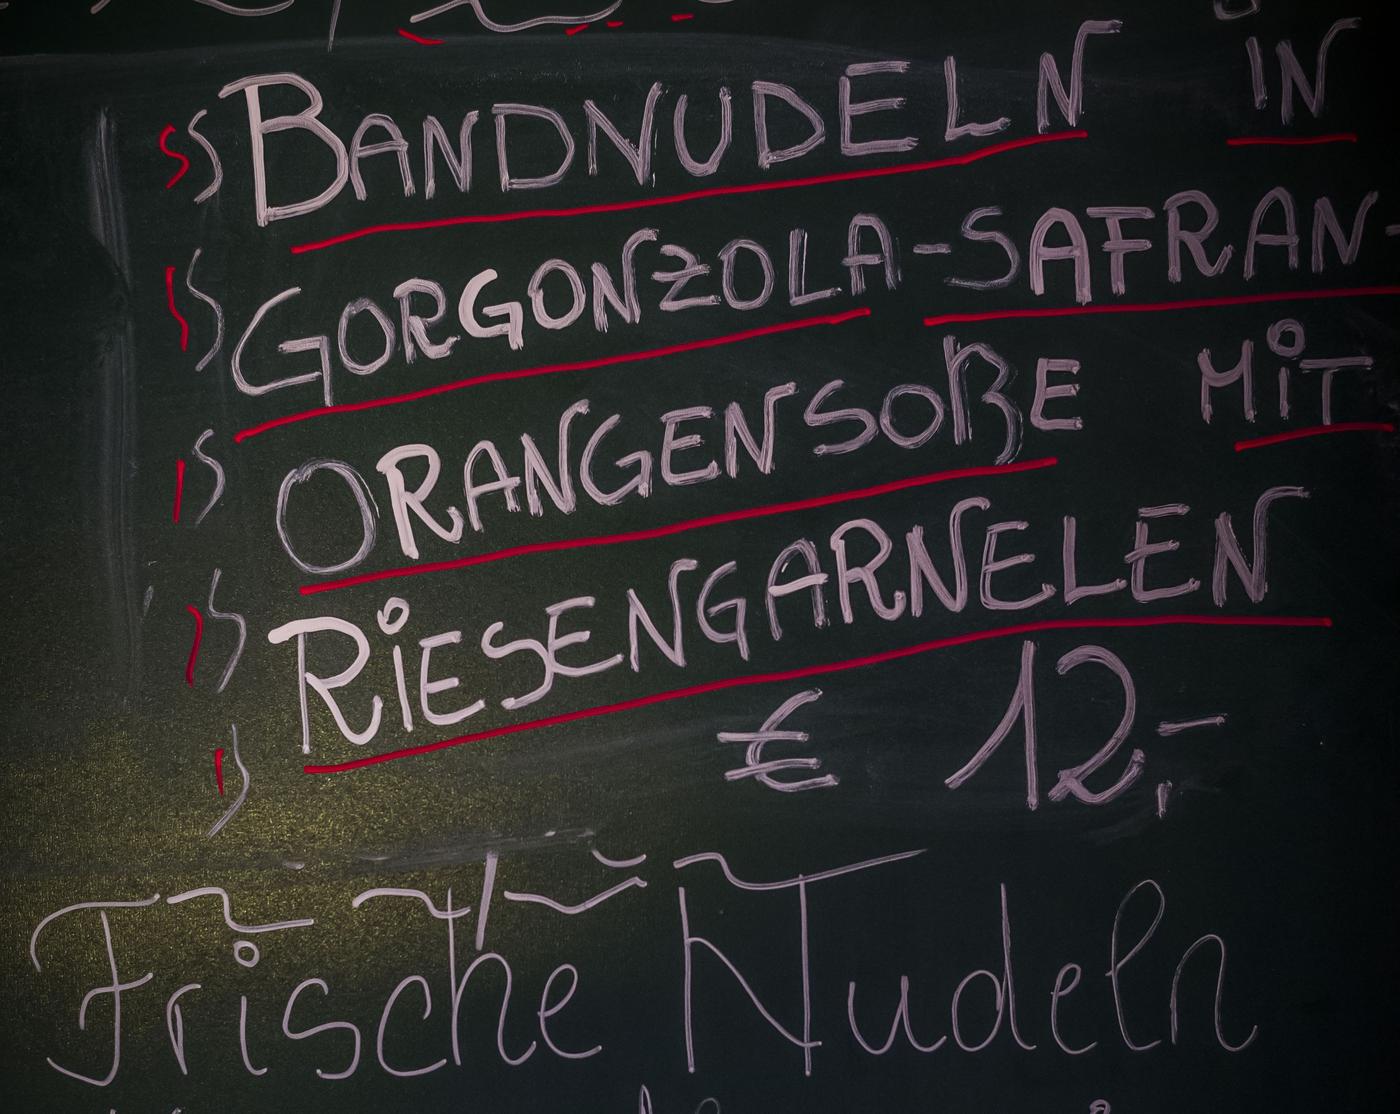 BANDNUDELN IN
GORGONZOLA-SAFRAN-
ORANGENSOßE MiT
RiESENGARNELEN
€ 12,-
Frische Nudeln